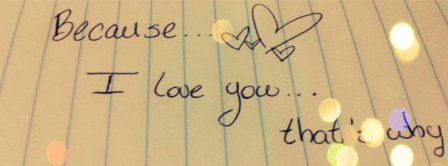 Because...
I love you...
that's why